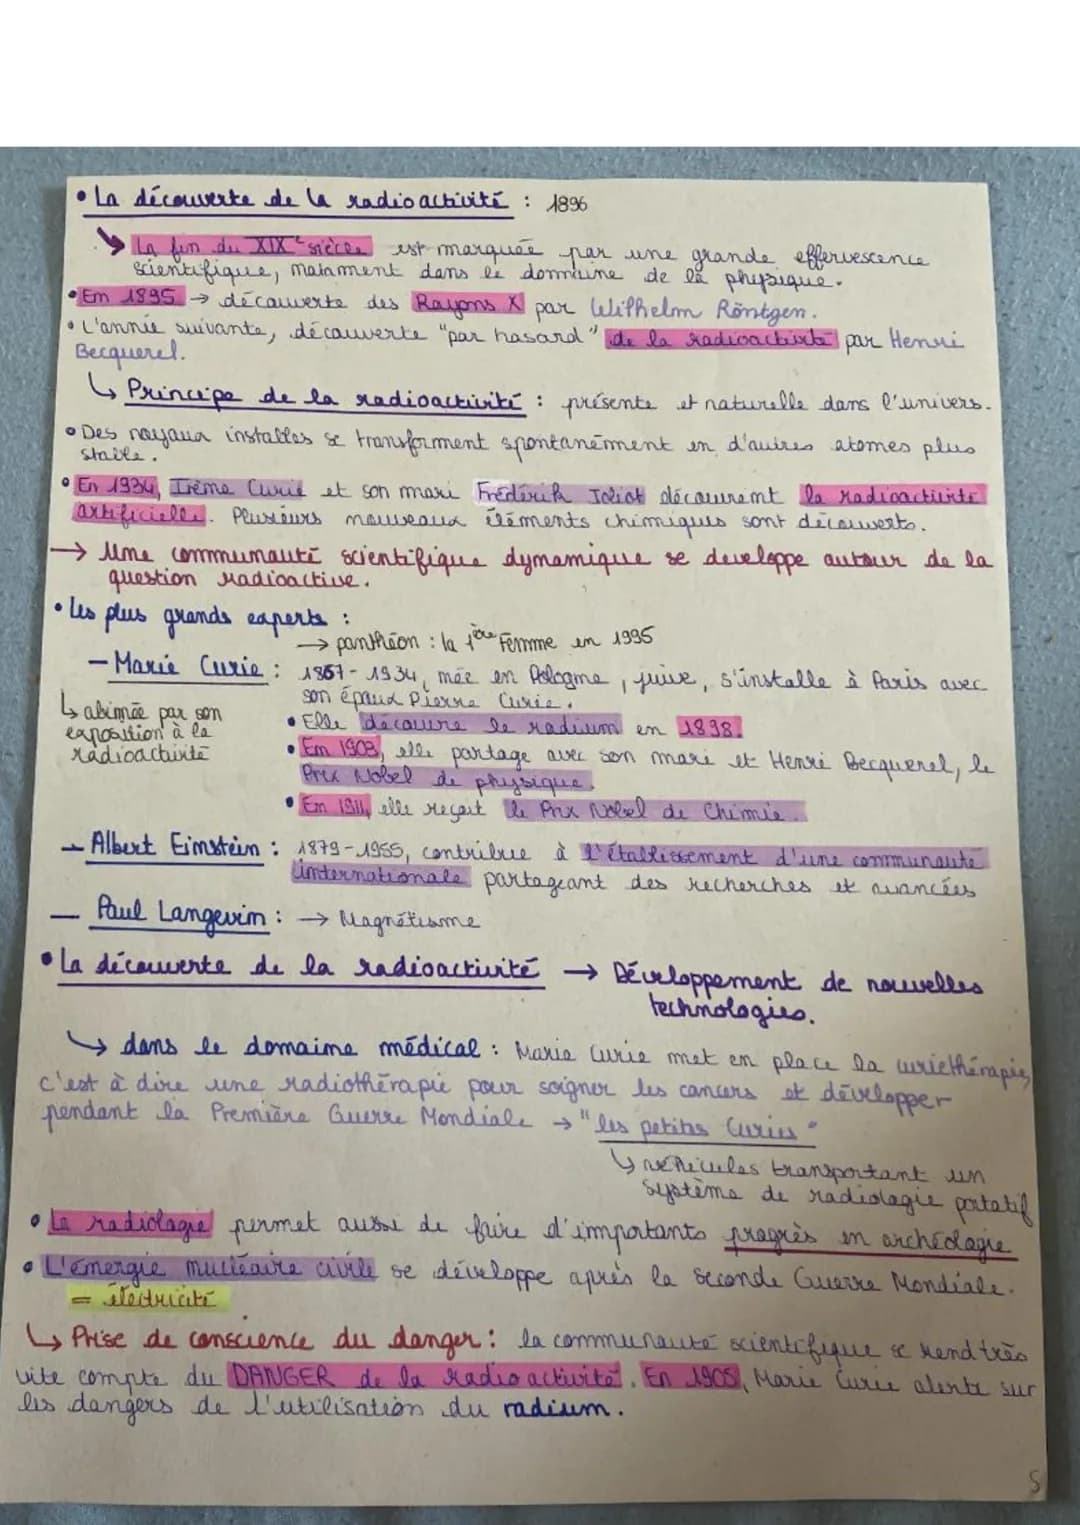 • La découverte de la radioactivité : 1896
↳ La fin du XIXe siècle est marquée par une grande effervescence
scientifique, notamment dans le domaine de la physique.
• En 1895 → découverte des Rayons X par Wilhelm Röntgen.
• L'année suivante, découverte "par hasard" de la radioactivité par Henri
Becquerel.
↳ Principe de la radioactivité : présente et naturelle dans l'univers.
• Des noyaux instables se transforment spontanément en d'autres atomes plus
stable.
• En 1934, Irème Curie et son mari Frédérik Joliot découvrent la radioactivité
artificielle. Plusieurs nouveaux éléments chimiques sont découverts.
→ Une communauté scientifique dynamique se developpe autour de la
question radioactive.
• Les plus grands experts :
→ panthéon : la 1ère Femme en 1995
- Marie Curie : 1867-1934, née en Pologne, juive, s'installe à Paris avec
son époux Pierre Curie.
↳ abimée par son
exposition à la
radioactivité
• Elle découvre le radium en 1898.
• En 1903, elle partage avec son mari et Henri Becquerel, le
Prix Nobel de physique.
• En 1911, elle reçoit le Prix Nobel de Chimie.
- Albert Einstein : 1879-1955, contribue à l'établissement d'une communauté
internationale partageant des recherches et avancées
- Paul Langevin : → Magnétisme
• La découverte de la radioactivité → Développement de nouvelles
technologies.
↳ dans le domaine médical : Marie Curie met en place la curiethérapie,
c'est à dire une radiothérapie pour soigner les cancers et développer
pendant la Première Guerre Mondiale → "les petites Curies"
↳ véhicules transportant un
système de radiologie portatif
• La radiologie permet aussi de faire d'importants progrès en archéologie
• L'énergie nucléaire civile se développe après la seconde Guerre Mondiale.
= électricité
↳ Prise de conscience du danger : la communauté scientifique se rend très
vite compte du DANGER de la radioactivité. En 1905, Marie Curie alerte sur
les dangers de l'utilisation du radium.
5